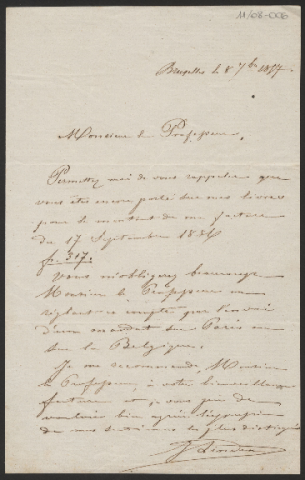 11/08-006
Bruxelles le 8 7bre 18
Monsieur le Professeur,
Permettez moi de vous rappeler que
vous êtes encore porté sur mes livres
pour le montant de ma facture
du 17 Septembre 185
fr. 317.
Vous m'obligerez beaucoup
Monsieur le Professeur en
réglant ce compte par l'envoi
d'un mandat sur Paris ou
sur la Belgique.
Je me recommande, Monsieur
le Professeur, à votre bienveillance
future et je vous prie de
vouloir bien agréer l'expression
de mes sentiments les plus distingués
J Linden